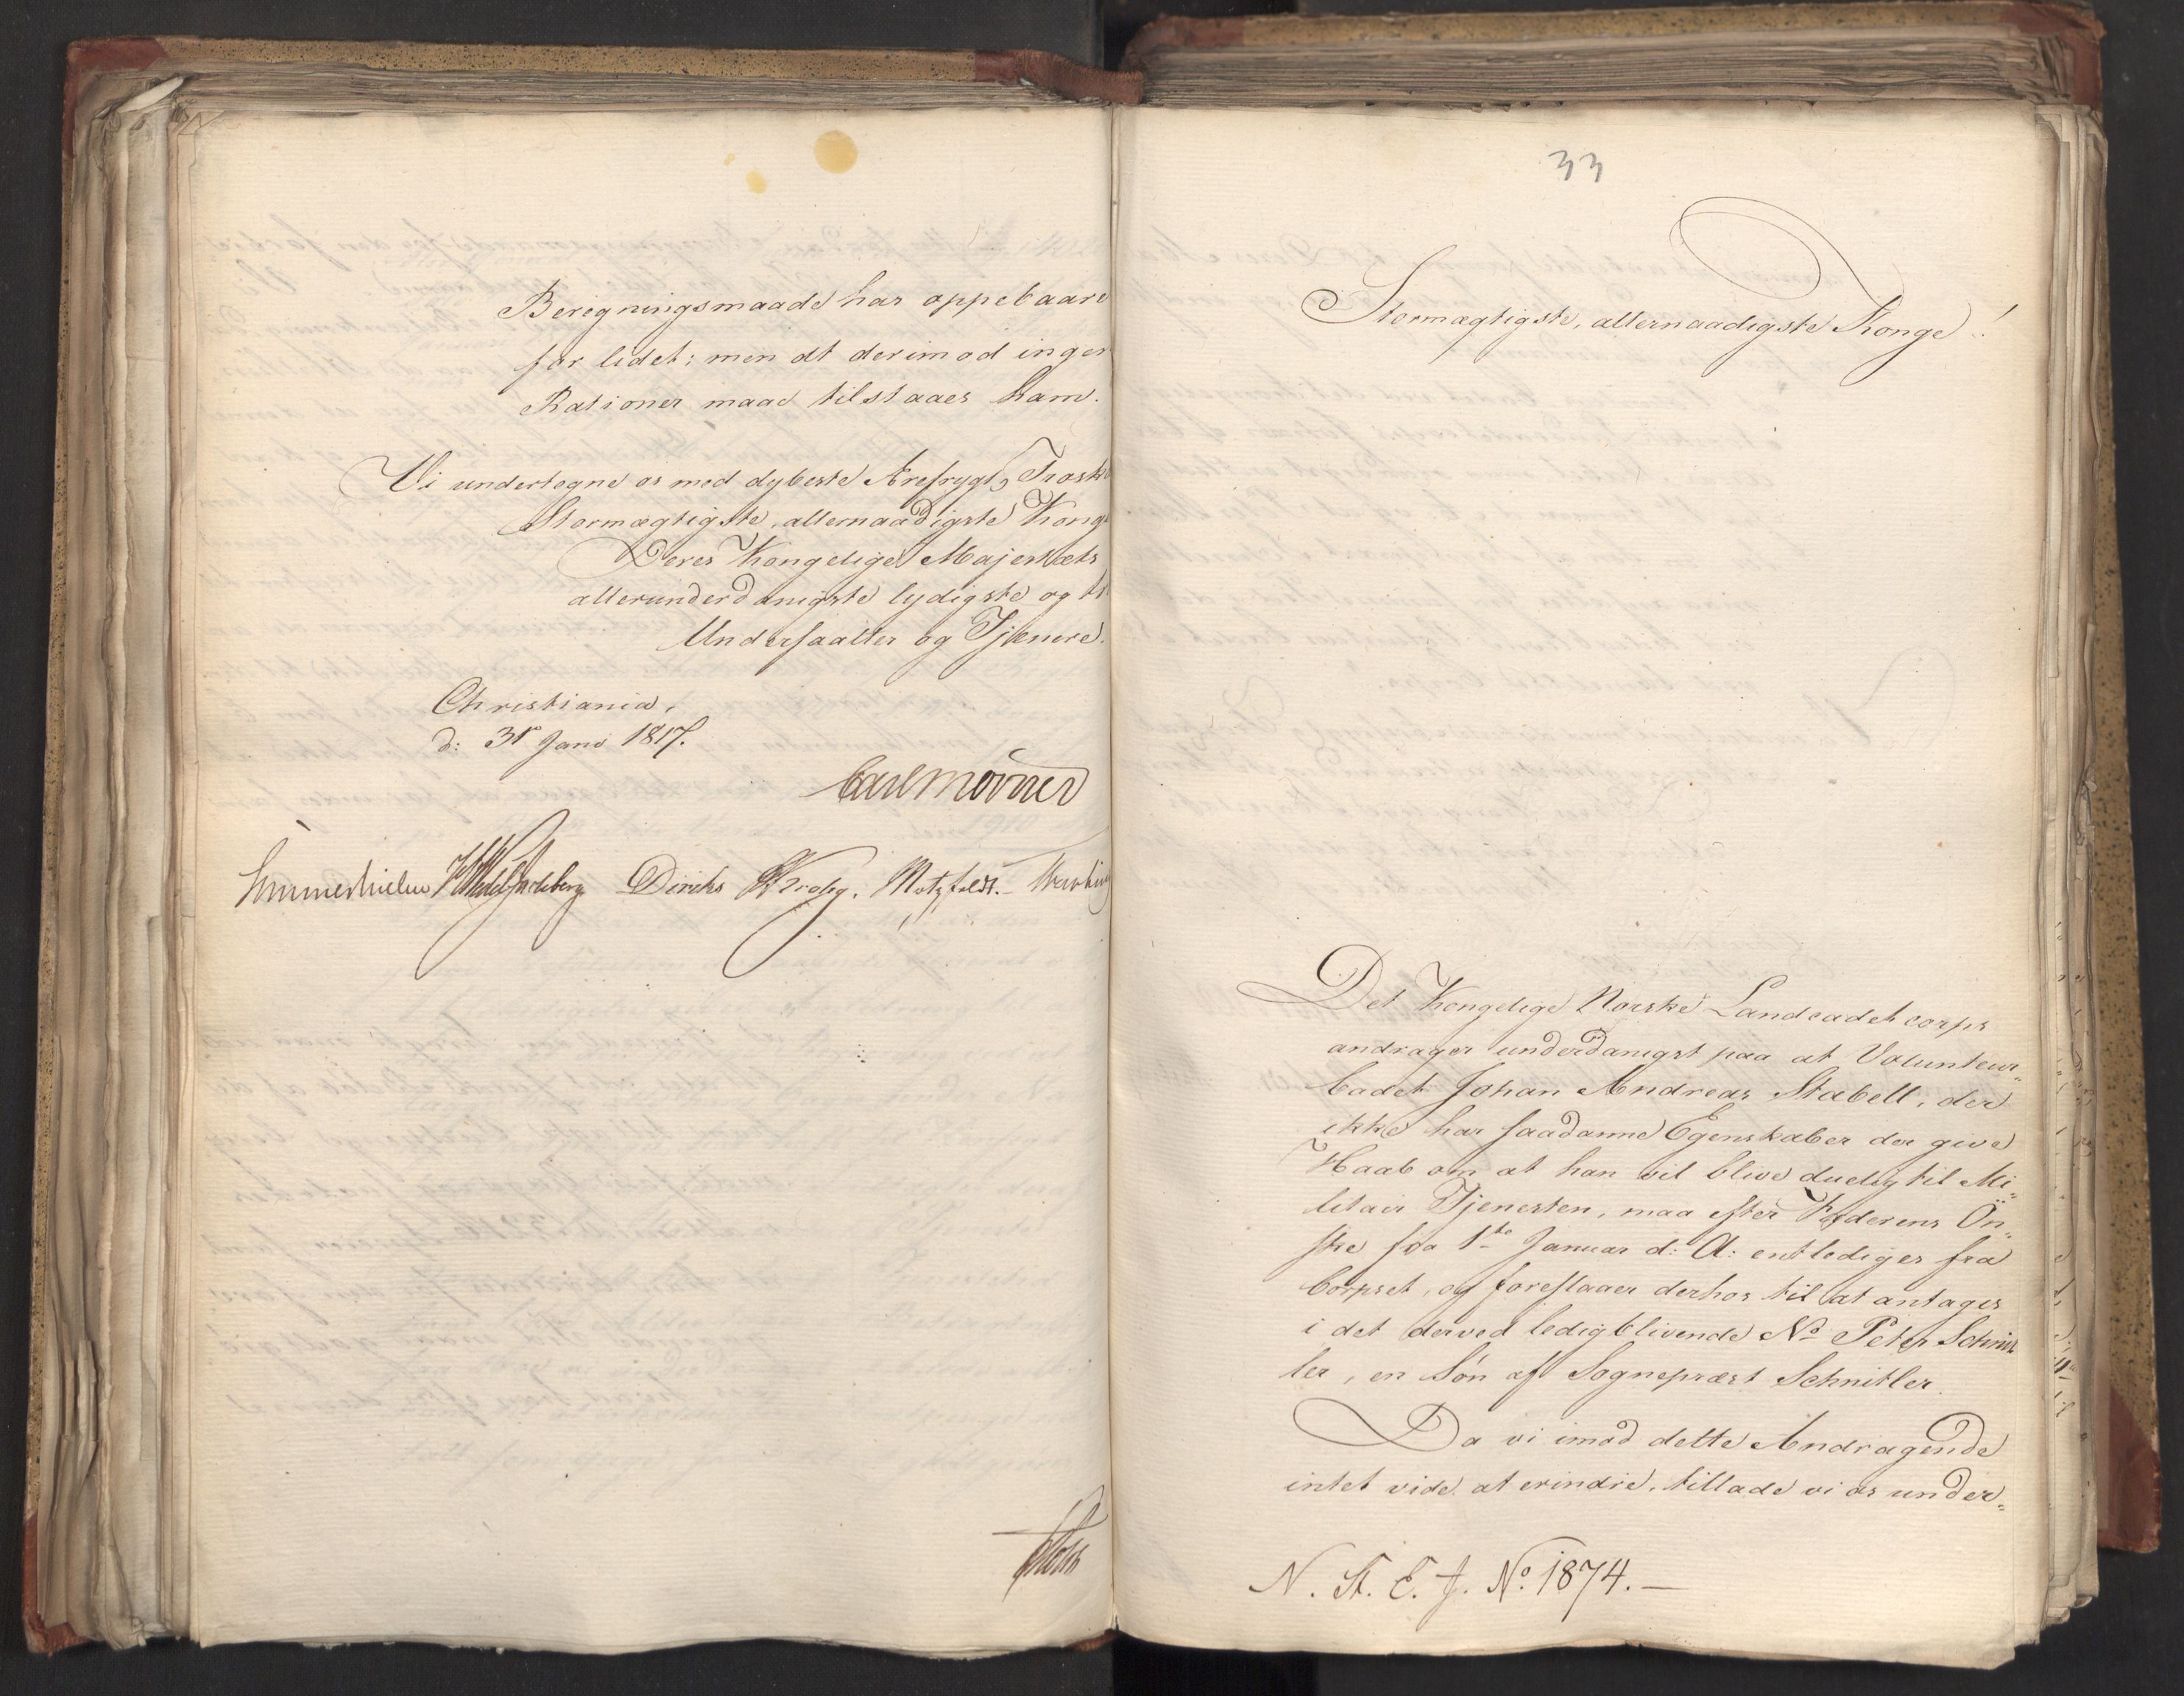 Beregningsmaade har oppebaare
for lidet; men at derimod ingen
Rationer maae tilstaaes ham.
Vi undertegne os med dybeste Ærefrygt, Trosk
Stormægtigste, allernaadigste Konge
Deres Kongelige Majestæts
allerunderdanigste lydigste og tr
Undersaatter og Tjenere.
Christiania,
d: 31r Janv 1817.
Carl Mörner
Sommerhielm HWedelJarlsberg Diriks Krohg. Motzfeldt.
Holst
33
Stormægtigste, allernaadigste Konge!
Det Kongelige Norske Landcadetcorps
andrager underdanigst paa at Volunteur-
Cadet Johan Andreas Stabell, der
ikke har saadanne Egenskaber der give
Haab om at han vil blive duelig til Mi-
litair Tjenesten, maa efter Faderens Ön-
ske fra 1ste Januar d: A: entlediges fra
Corpset, og foreslaaer derhos til at antages
i det derved ledigblivende No Peter Schnit
ler, en Søn af Sogneprest Schnitler.
Da vi imod dette Andragende
intet vide at erindre, tillade vi os under-
N. St. E. J. No. 1874.—